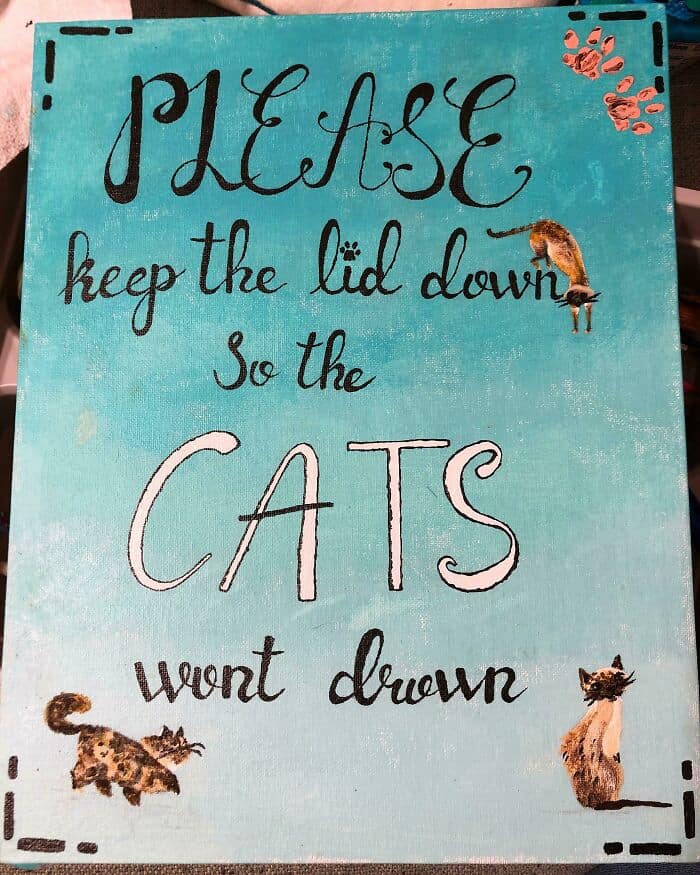 PLEASE
keep the lid down
So the
CATS
wont drown